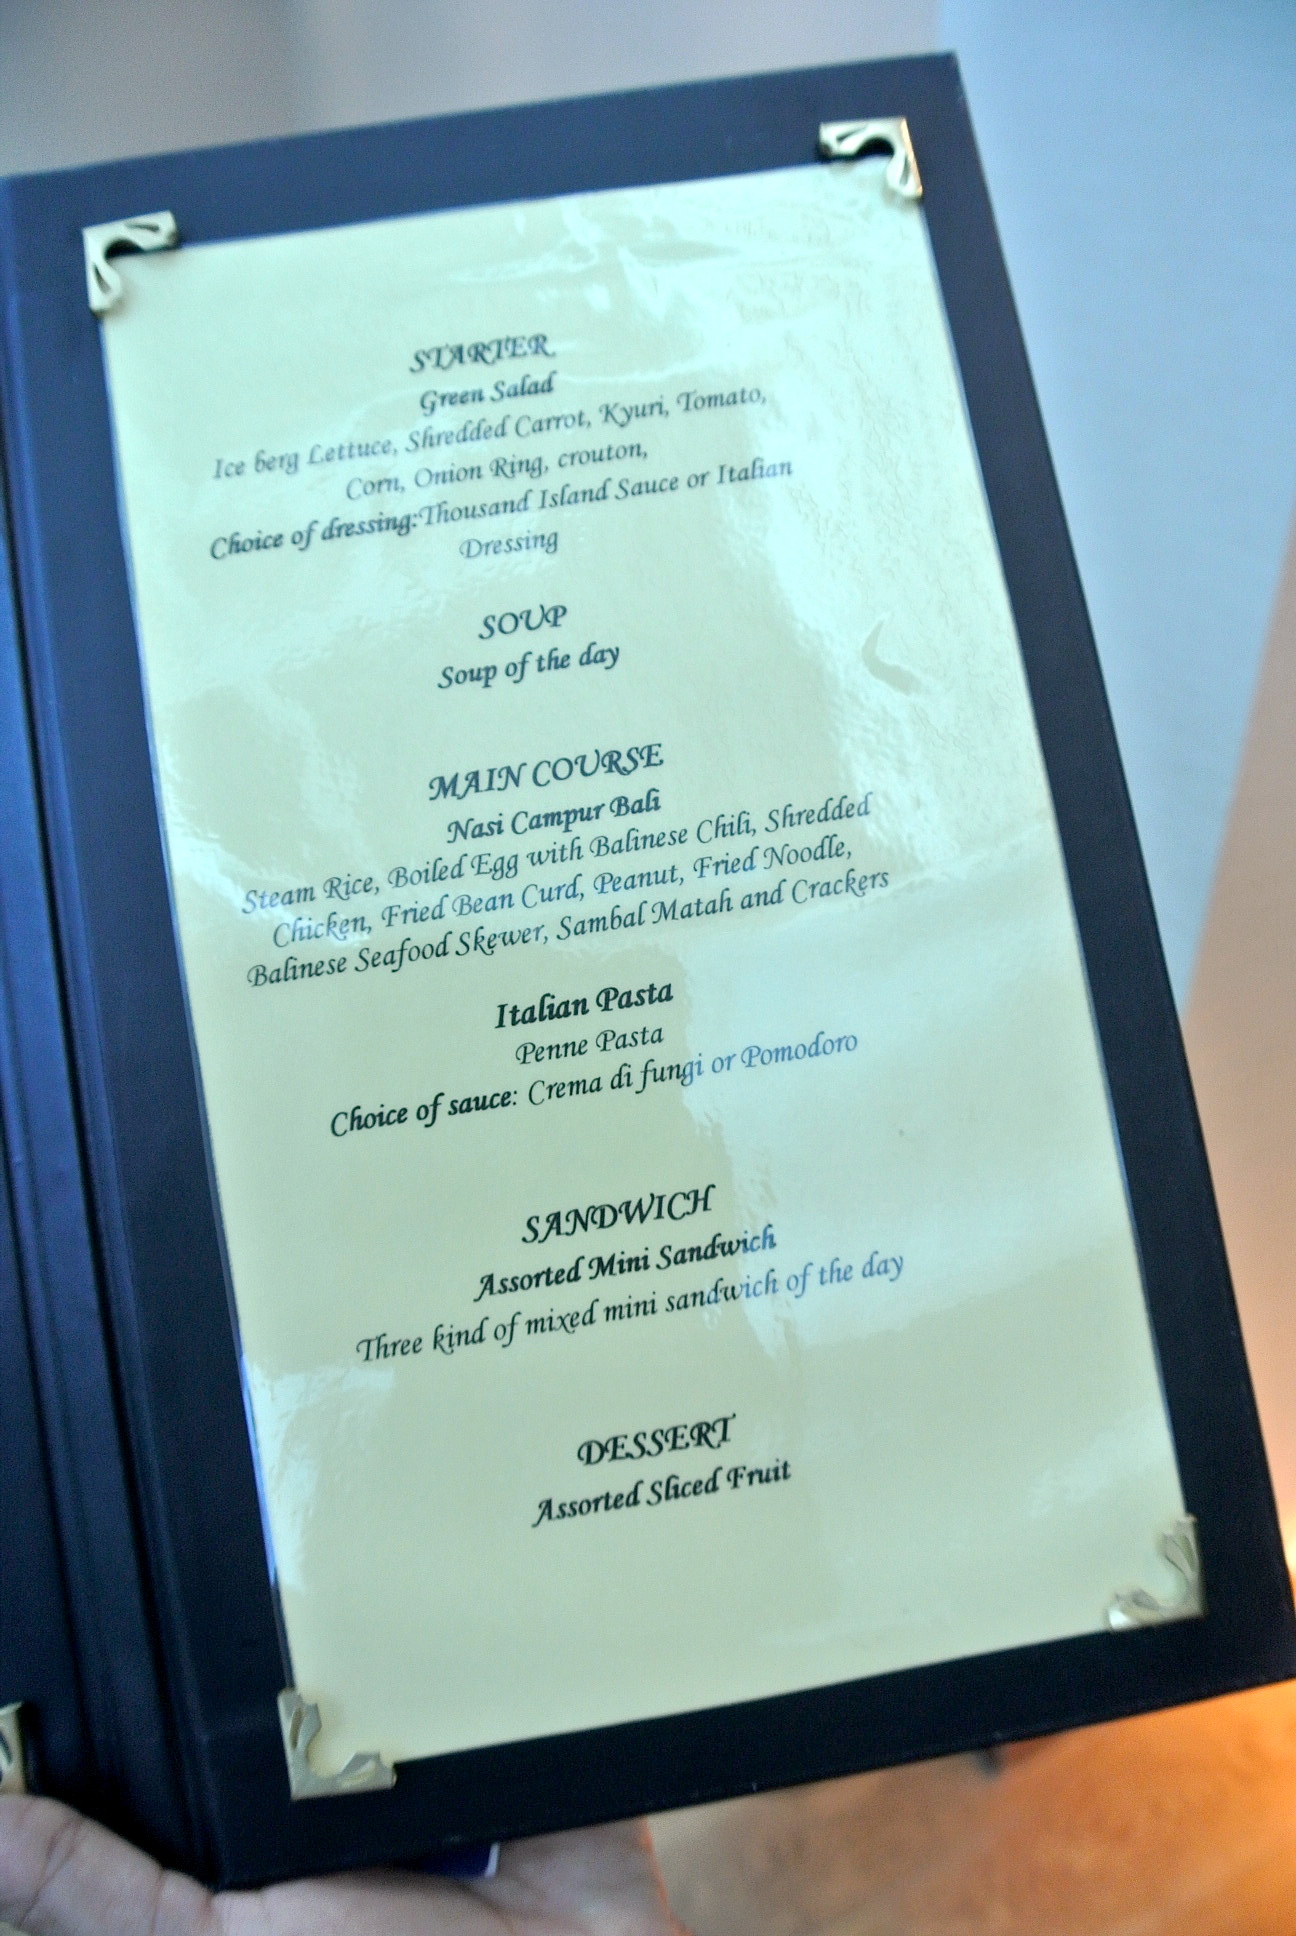 STARTER
Green Salad
Ice berg Lettuce, Shredded Carrot, Kyuri, Tomato,
Corn, Onion Ring, crouton,
Choice of dressing:Thousand Island Sauce or Italian
Dressing
SOUP
Soup of the day
MAIN COURSE
Nasi Campur Bali
Steam Rice, Boiled Egg with Balinese Chili, Shredded
Chicken, Fried Bean Curd, Peanut, Fried Noodle,
Balinese Seafood Skewer, Sambal Matah and Crackers
Italian Pasta
Penne Pasta
Choice of sauce: Crema di fungi or Pomodoro
SANDWICH
Assorted Mini Sandwich
Three kind of mixed mini sandwich of the day
DESSERT
Assorted Sliced Fruit